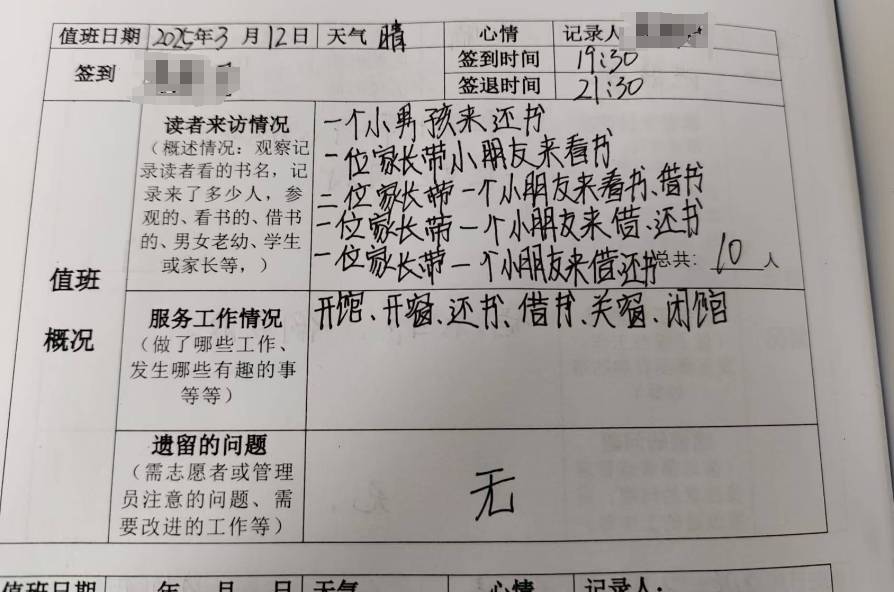 值班日期 2025年3月12日 天气 晴 心情 记录人
签到 签到时间 19:30
签退时间 21:30
值班
概况
读者来访情况
（概述情况：观察记
录读者看的书名，记
录来了多少人，参
观的、看书的、借书
的、男女老幼、学生
或家长等，）
一个小男孩来还书
一位家长带小朋友来看书
二位家长带一个小朋友来看书、借书
一位家长带一个小朋友来借、还书
一位家长带一个小朋友来借还书 总共：10人
服务工作情况
（做了哪些工作、
发生哪些有趣的事
等等）
开馆、开窗、还书、借书、关窗、闭馆
遗留的问题
（需志愿者或管理
员注意的问题、需
要改进的工作等）
无
值班日期 年 月 日 天气 心情 记录人：